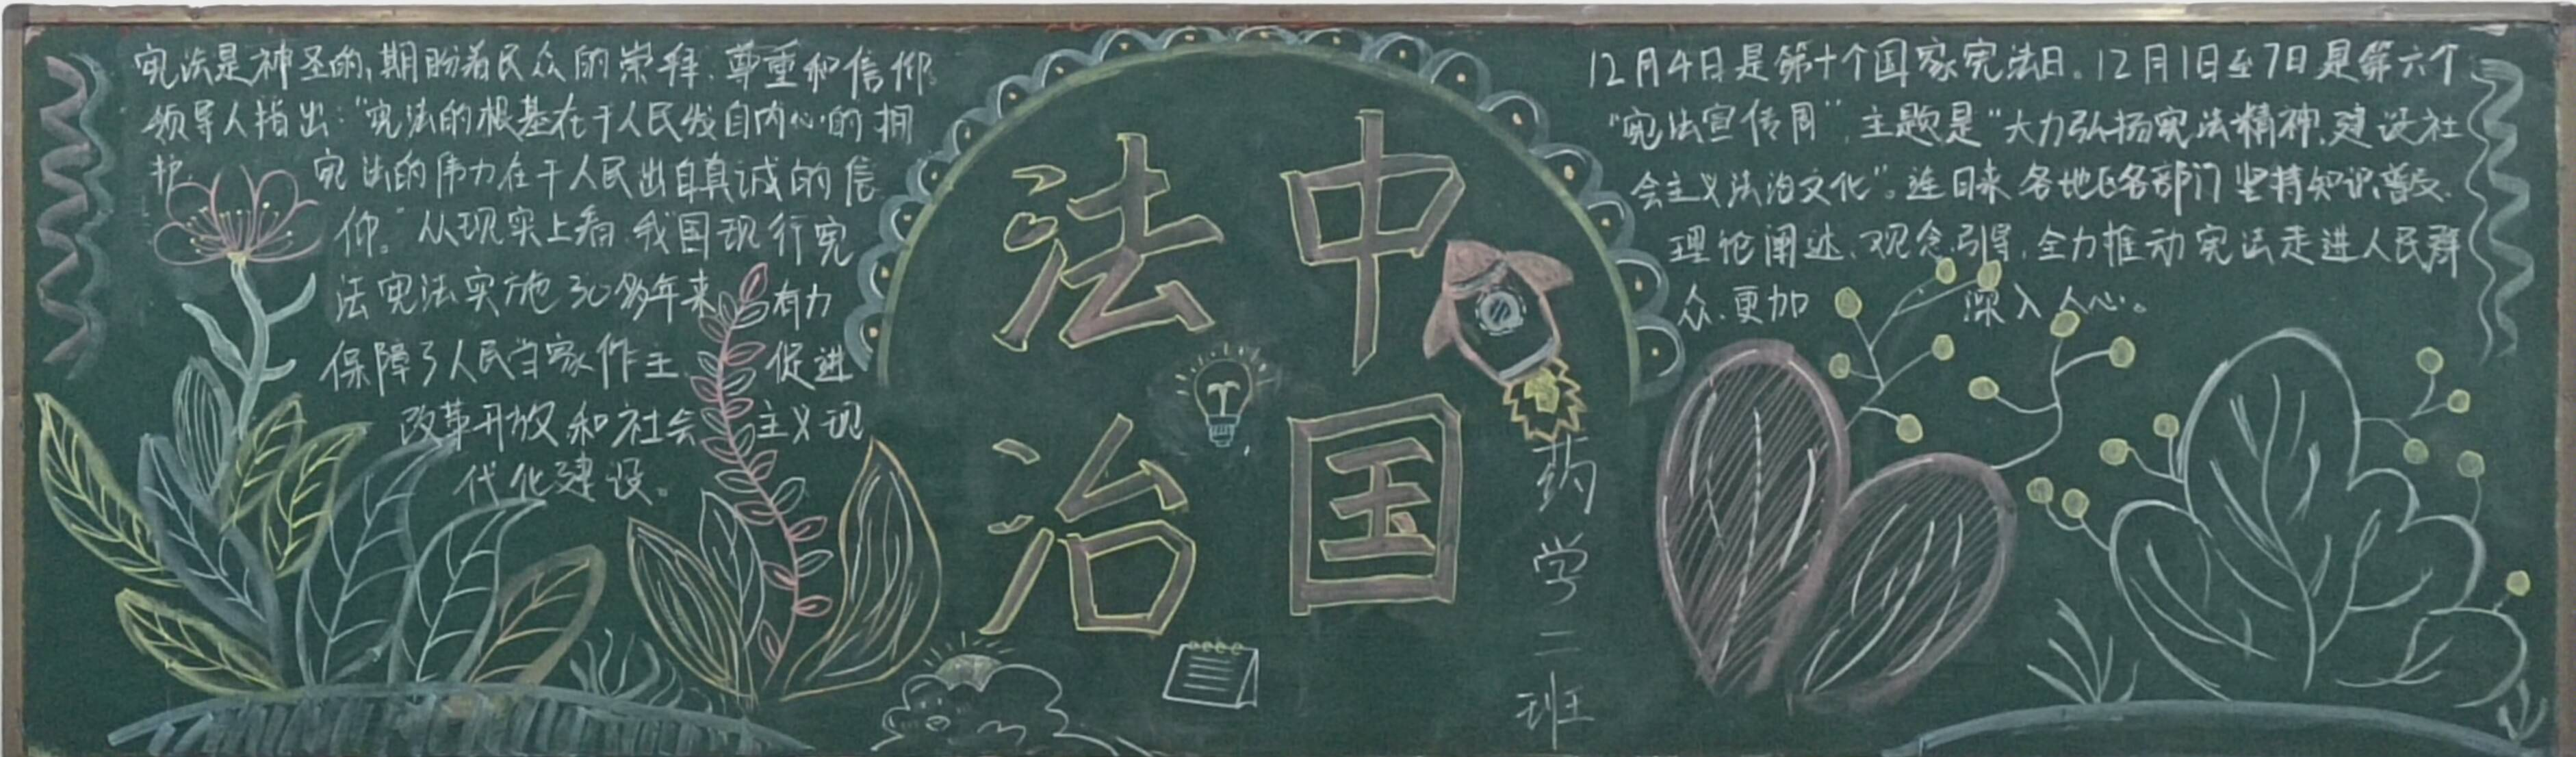 宪法是神圣的,期盼着民众的崇拜、尊重和信仰。
领导人指出:“宪法的根基在于人民发自内心的拥
护、宪法的伟力在于人民出自真诚的信
仰。”从现实上看,我国现行宪
法宪法实施30多年来,有力
保障了人民当家作主、促进
改革开放和社会主义现
代化建设。
法中
治国
药学二班
12月4日是第十个国家宪法日。12月1日至7日是第六个
“宪法宣传周”,主题是“大力弘扬宪法精神,建设社
会主义法治文化”。连日来各地区各部门坚持知识普及、
理论阐述、观念引导,全力推动宪法走进人民群
众,更加深入人心。